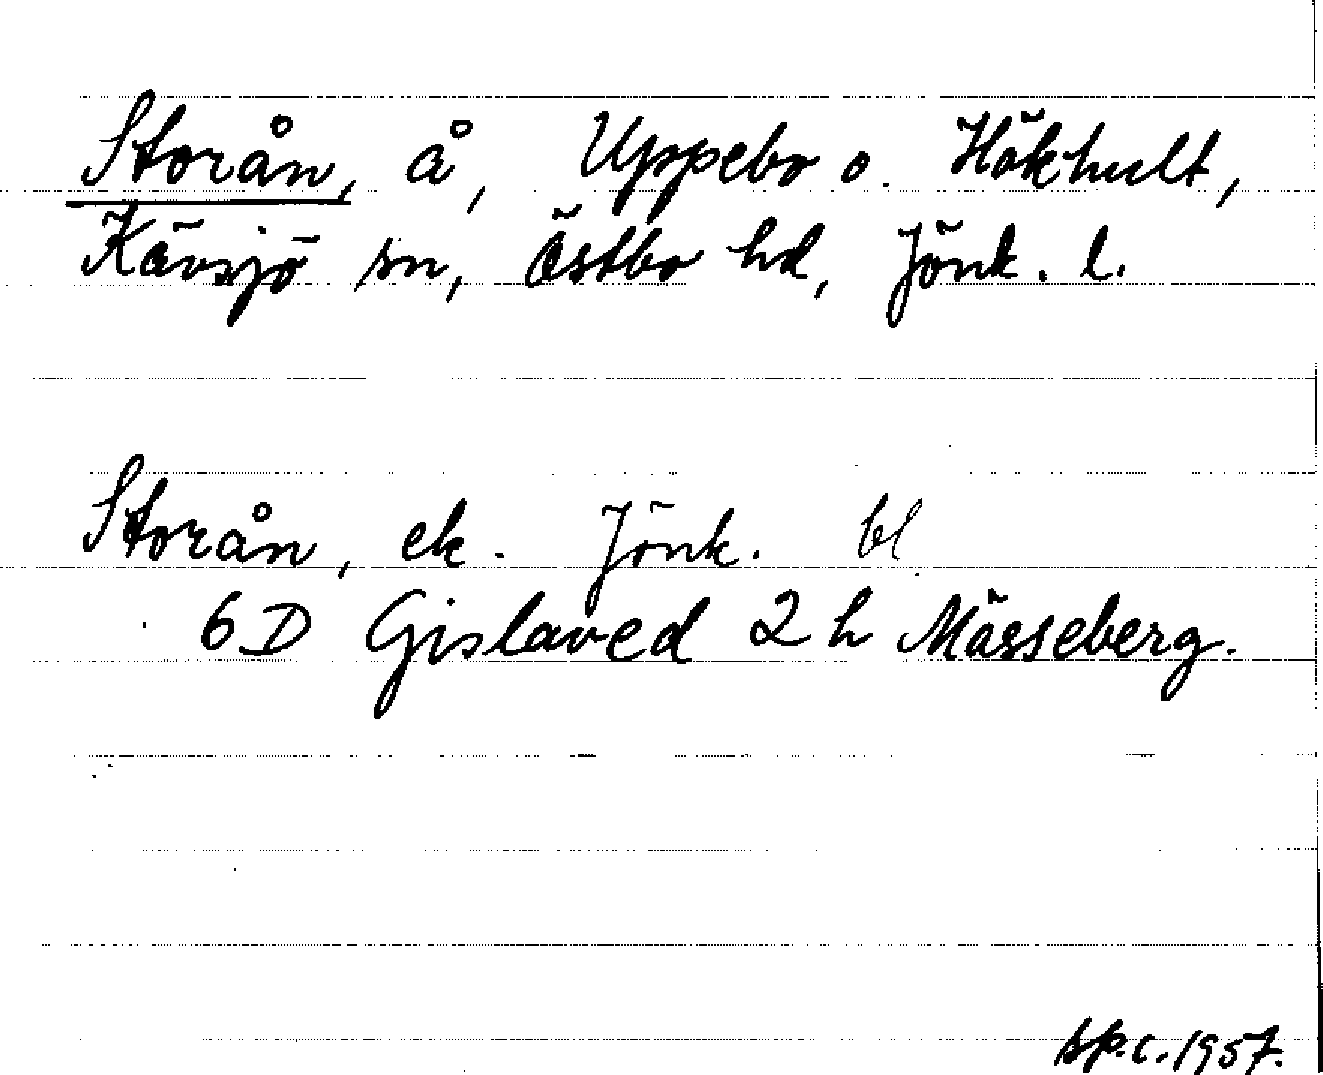 Storån, å, Uppebo o. Hökhult,
Kävsjö sn, Östbo hd, Jönk. l.
Storån, ek. Jönk. bl.
6D Gislaved 2 h Mässeberg.
sp.c. 1957.